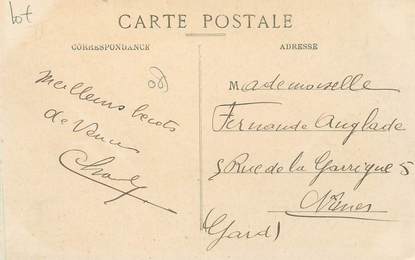 lot
CARTE POSTALE
CORRESPONDANCE
ADRESSE
Meilleurs
de
Mademoiselle
Fernande Anglade
5 Rue de la Garrigue 5
Nîmes
(Gard)